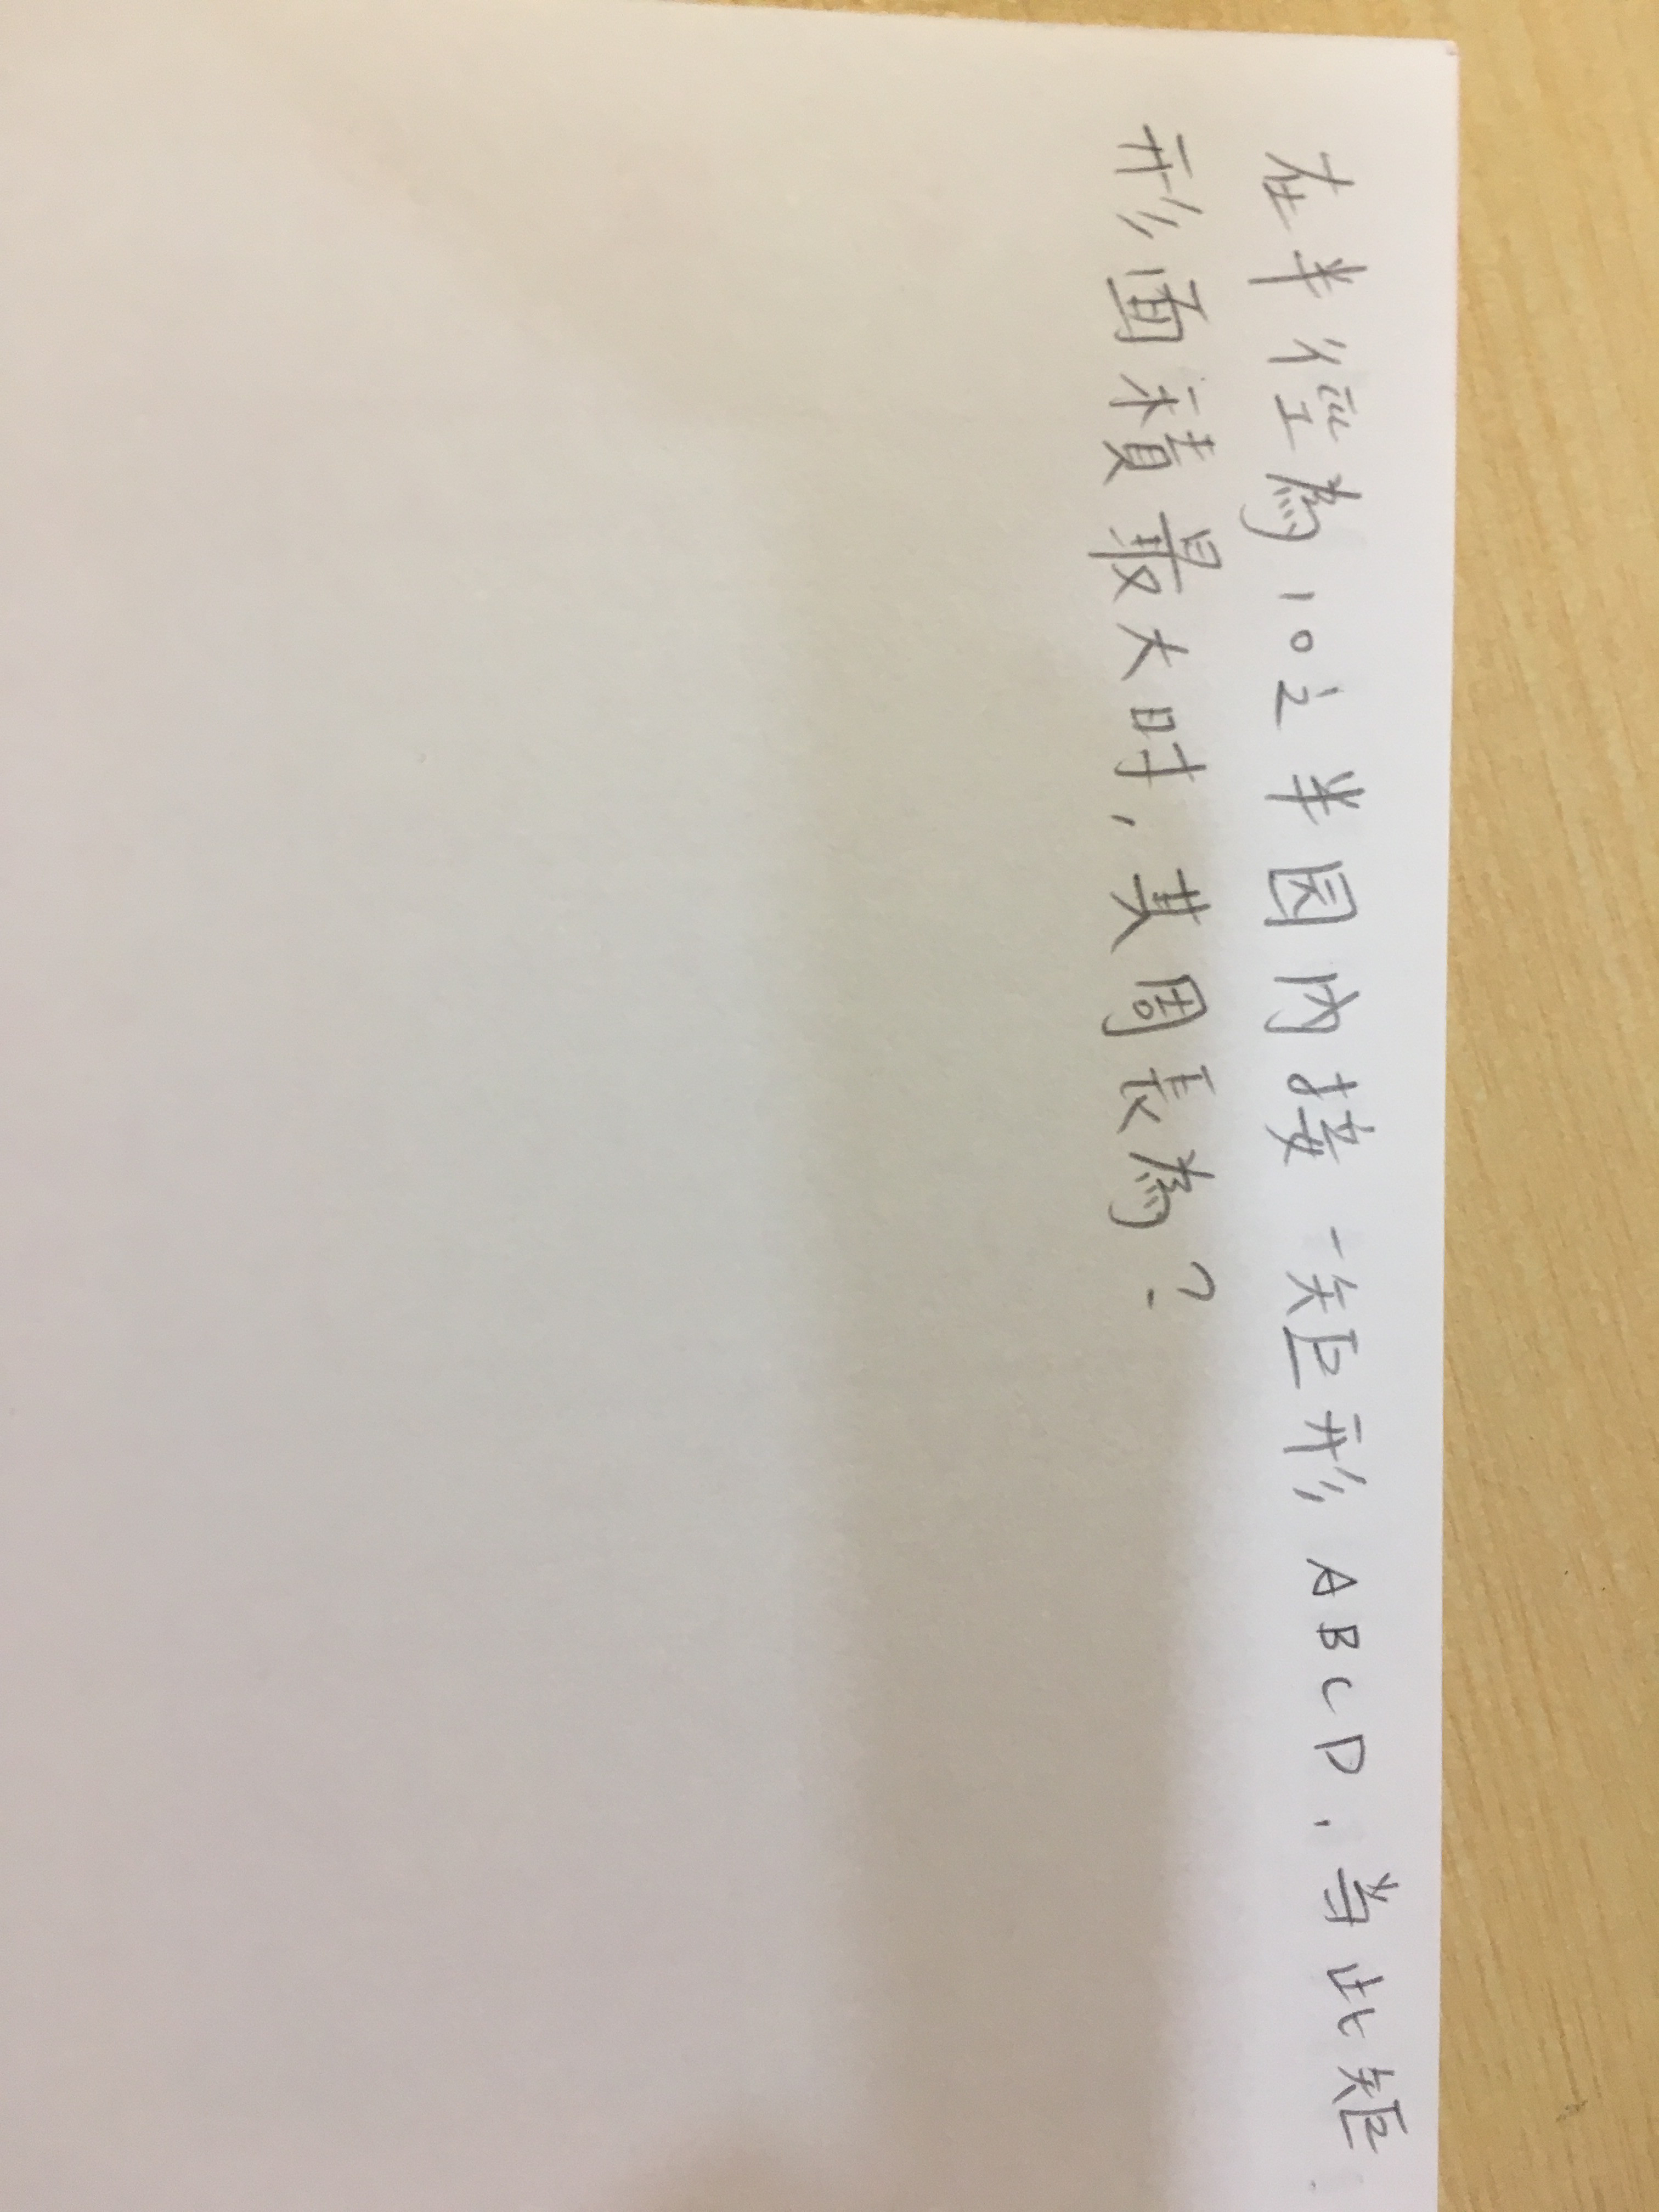 在半徑為10之半囩內接一矩形ABCD,当此矩
形面積最大时,其周長為?